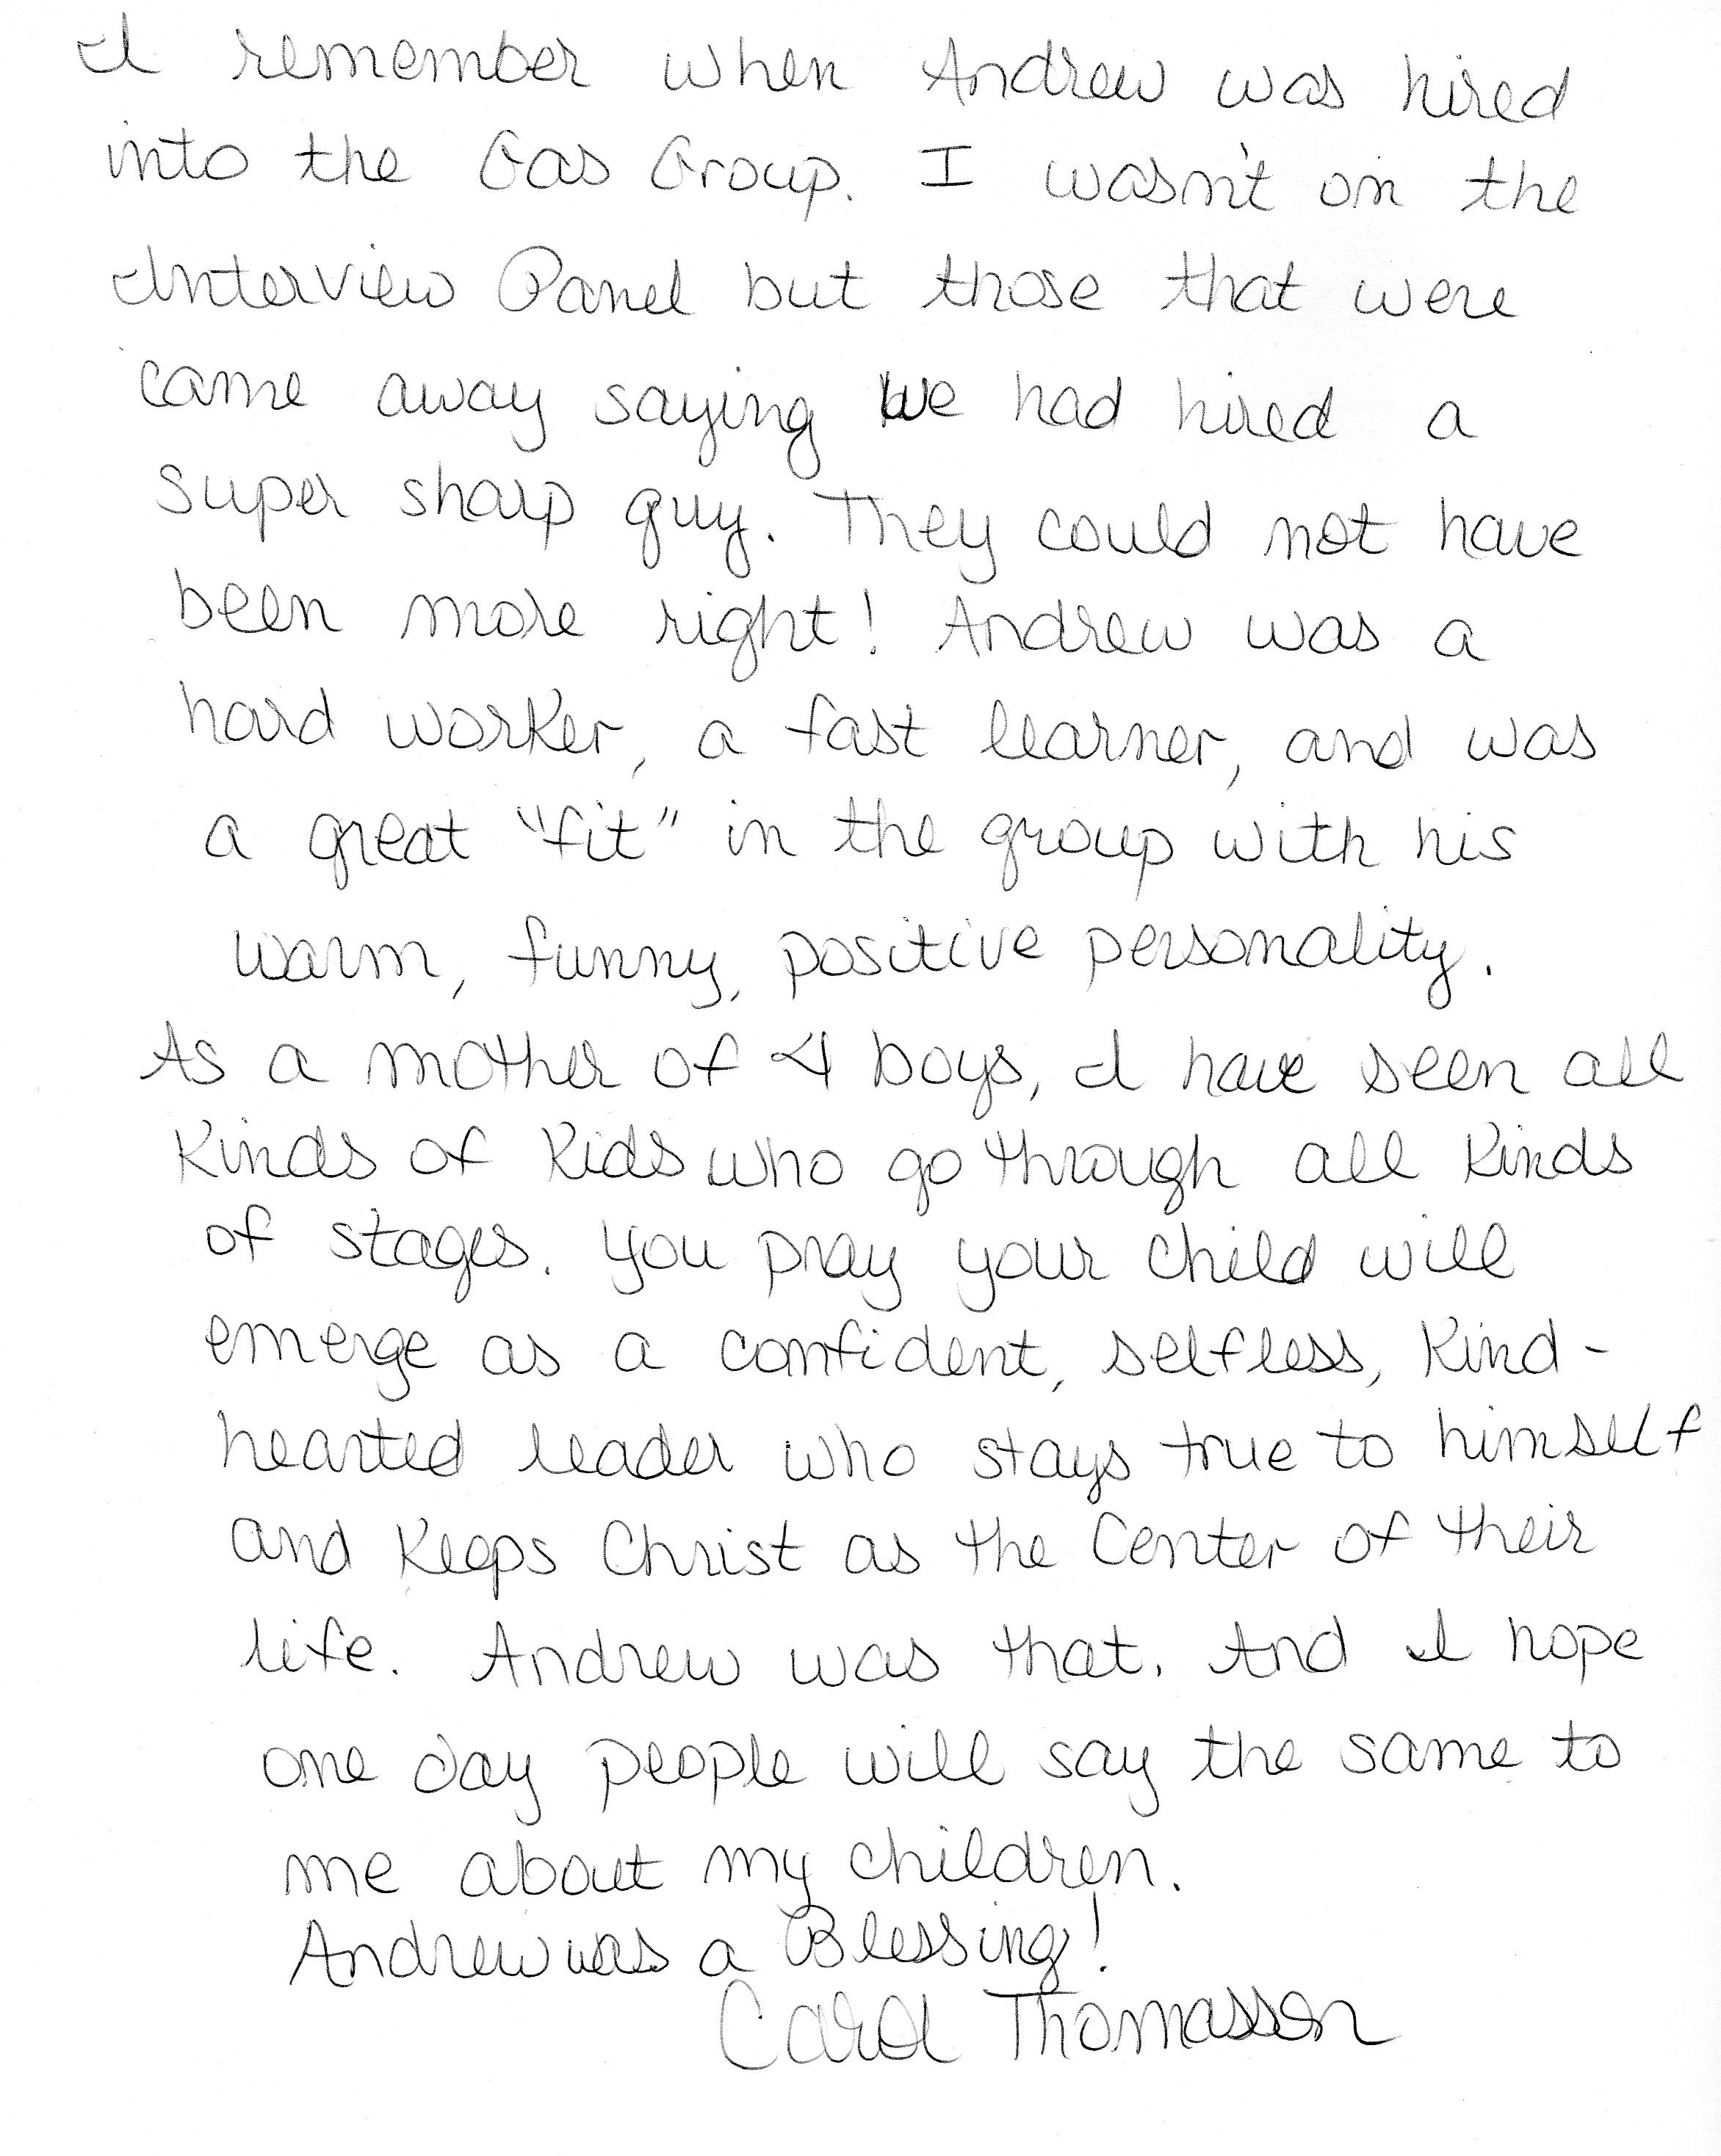 I remember when Andrew was hired
into the Gas Group. I wasn't on the
Interview Panel but those that were
came away saying we had hired a
super sharp guy. They could not have
been more right! Andrew was a
hard worker, a fast learner, and was
a great "fit" in the group with his
warm, funny, positive personality.
As a mother of 4 boys, I have seen all
kinds of kids who go through all kinds
of stages. You pray your child will
emerge as a confident, selfless, kind-
hearted leader who stays true to himself
and keeps Christ as the Center of their
life. Andrew was that. And I hope
one day people will say the same to
me about my children.
Andrew was a Blessing!
Carol Thomassen